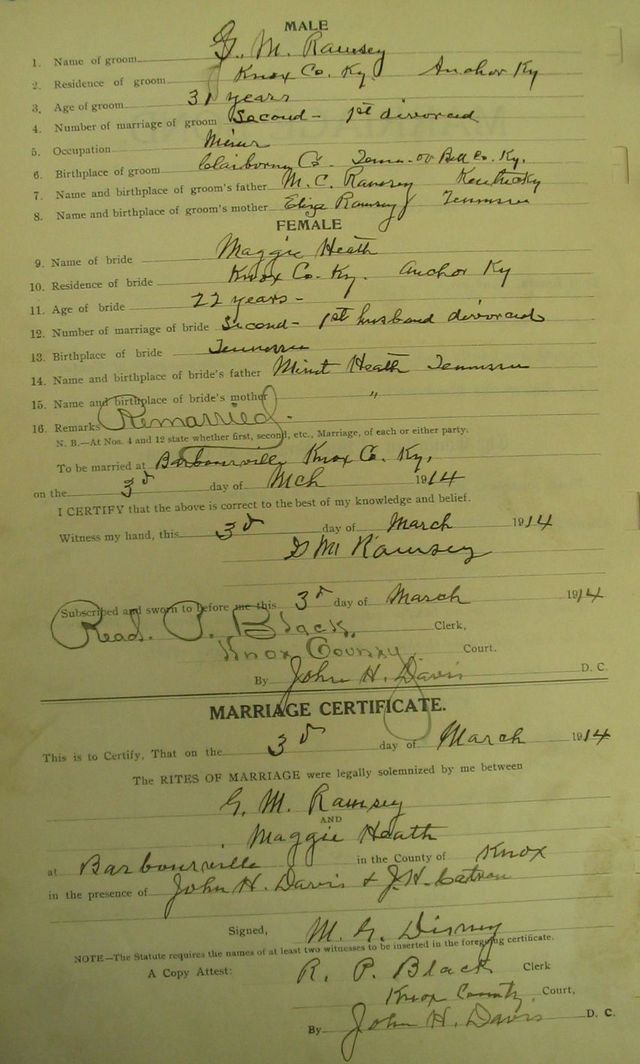 MALE
1. Name of groom G. M. Ramsey
2. Residence of groom Knox Co. Ky Anchor Ky
3. Age of groom 31 years
4. Number of marriage of groom Second - 1st divorced
5. Occupation Miner
6. Birthplace of groom Claiborne Co. Tenn. or Bell Co. Ky.
7. Name and birthplace of groom's father M. C. Ramsey Kentucky
8. Name and birthplace of groom's mother Eliza Ramsey Tennessee
FEMALE
9. Name of bride Maggie Heath
10. Residence of bride Knox Co. Ky. Anchor Ky
11. Age of bride 22 years -
12. Number of marriage of bride Second - 1st husband divorced
13. Birthplace of bride Tennessee
14. Name and birthplace of bride's father Heath Tennessee
15. Name and birthplace of bride's mother "
16. Remarks Remarried.
N. B.—At Nos. 4 and 12 state whether first, second, etc., Marriage, of each or either party.
To be married at Barbourville Knox Co. Ky.
on the 3d day of Mch 1914
I CERTIFY that the above is correct to the best of my knowledge and belief.
Witness my hand, this 3d day of March 1914
G M Ramsey
Subscribed and sworn to before me this 3d day of March 1914
Read. P. Black, Clerk,
Knox County Court.
By John H. Davis D. C.
MARRIAGE CERTIFICATE.
This is to Certify, That on the 3d day of March 1914
The RITES OF MARRIAGE were legally solemnized by me between
G. M. Ramsey
AND
Maggie Heath
at Barbourville in the County of Knox
in the presence of John H. Davis & J. H. Catron
Signed, M. G. Disney
NOTE—The Statute requires the names of at least two witnesses to be inserted in the foregoing certificate.
A Copy Attest: R. P. Black Clerk
Knox County, Court,
By John H. Davis D. C.